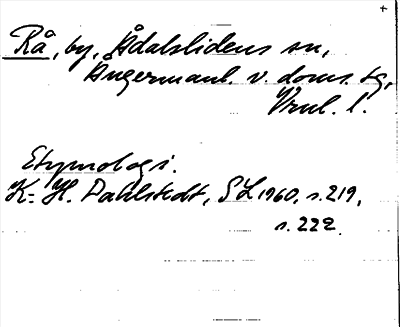 Rå, by, Ådalslidens sn,
Ångermanl. v. doms. tg,
Vrnl. l.
Etymologi.
K.-H. Dahlstedt, SL 1960, s. 219,
s. 222.